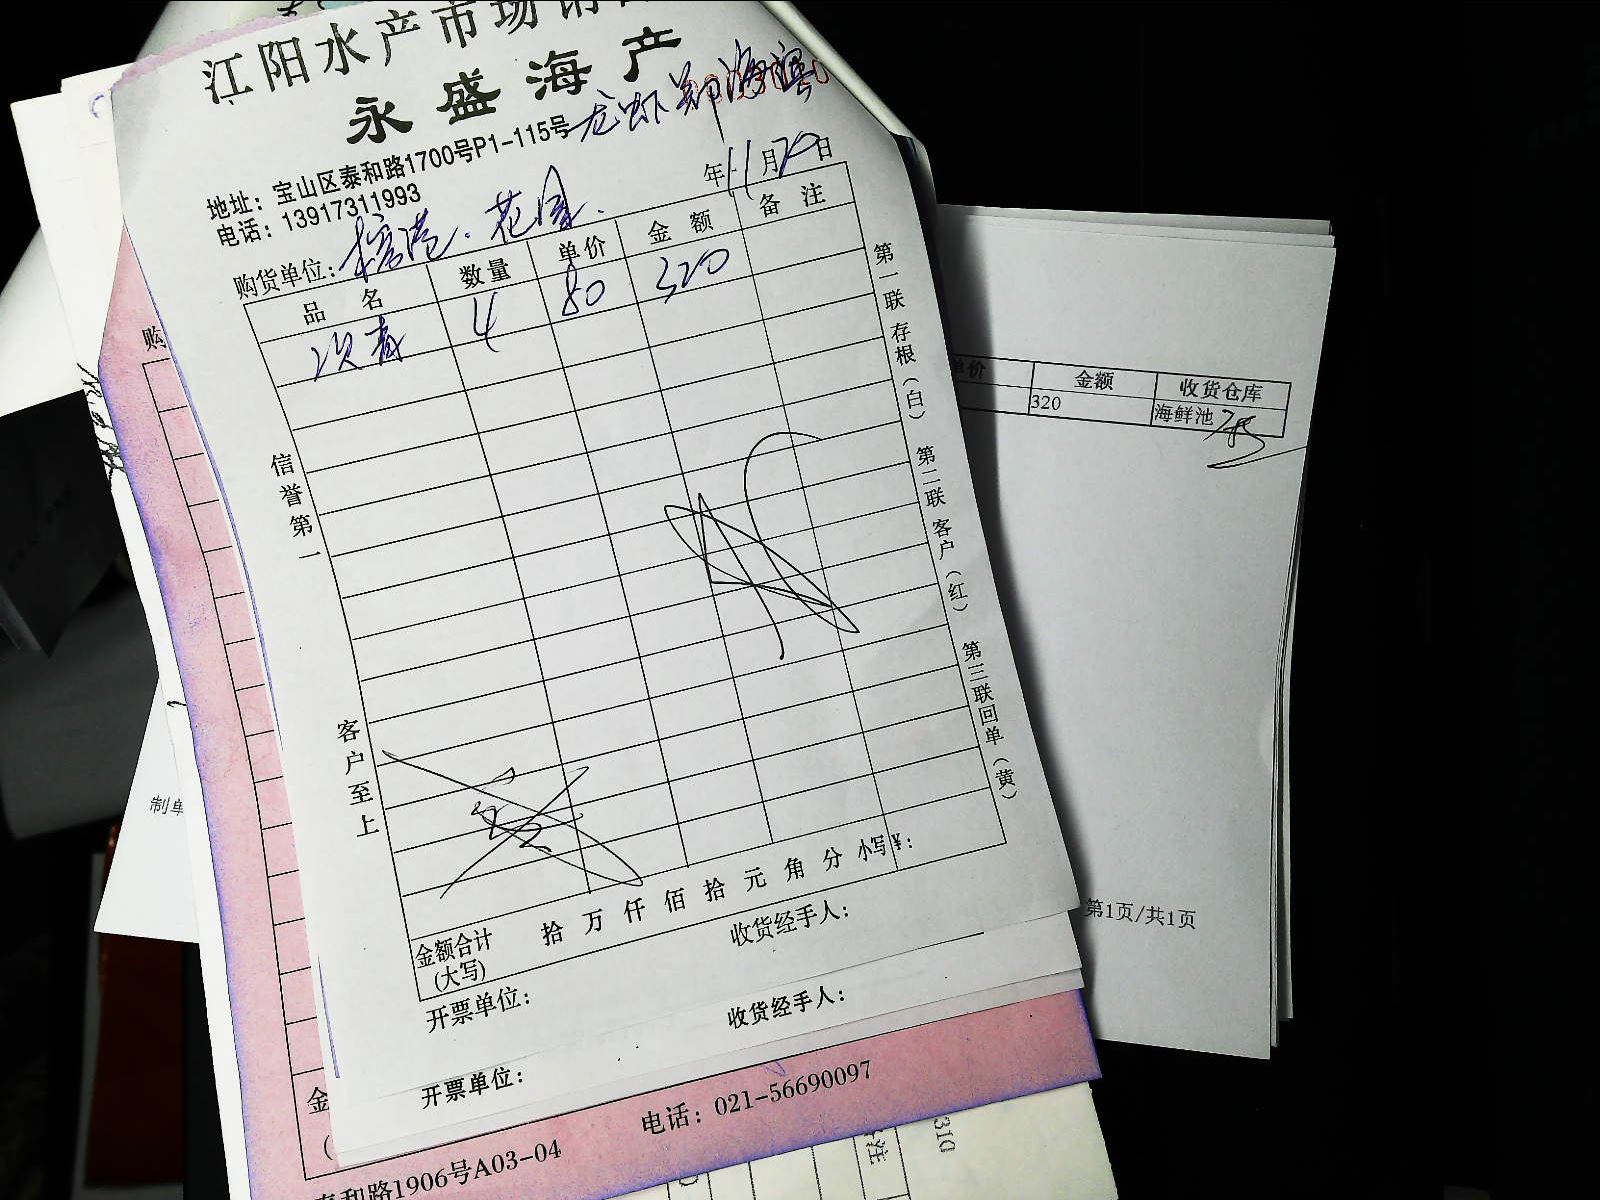 江阳水产市场销
永盛海产
龙虾郑海滨
地址：宝山区泰和路1700号P1-115号
电话：13917311993
年11月20日
购货单位：榕港.花园.
品名 数量 单价 金额 备注
次青 4 80 320
信誉第一
客户至上
第一联存根（白）
第二联客户（红）
第三联回单（黄）
金额合计(大写) 拾 万 仟 佰 拾 元 角 分 小写¥：
收货经手人：
开票单位：
收货经手人：
开票单位：
电话：021-56690097
泰和路1906号A03-04
购
金
制单
单价 金额 收货仓库
320 海鲜池
第1页/共1页
310
注